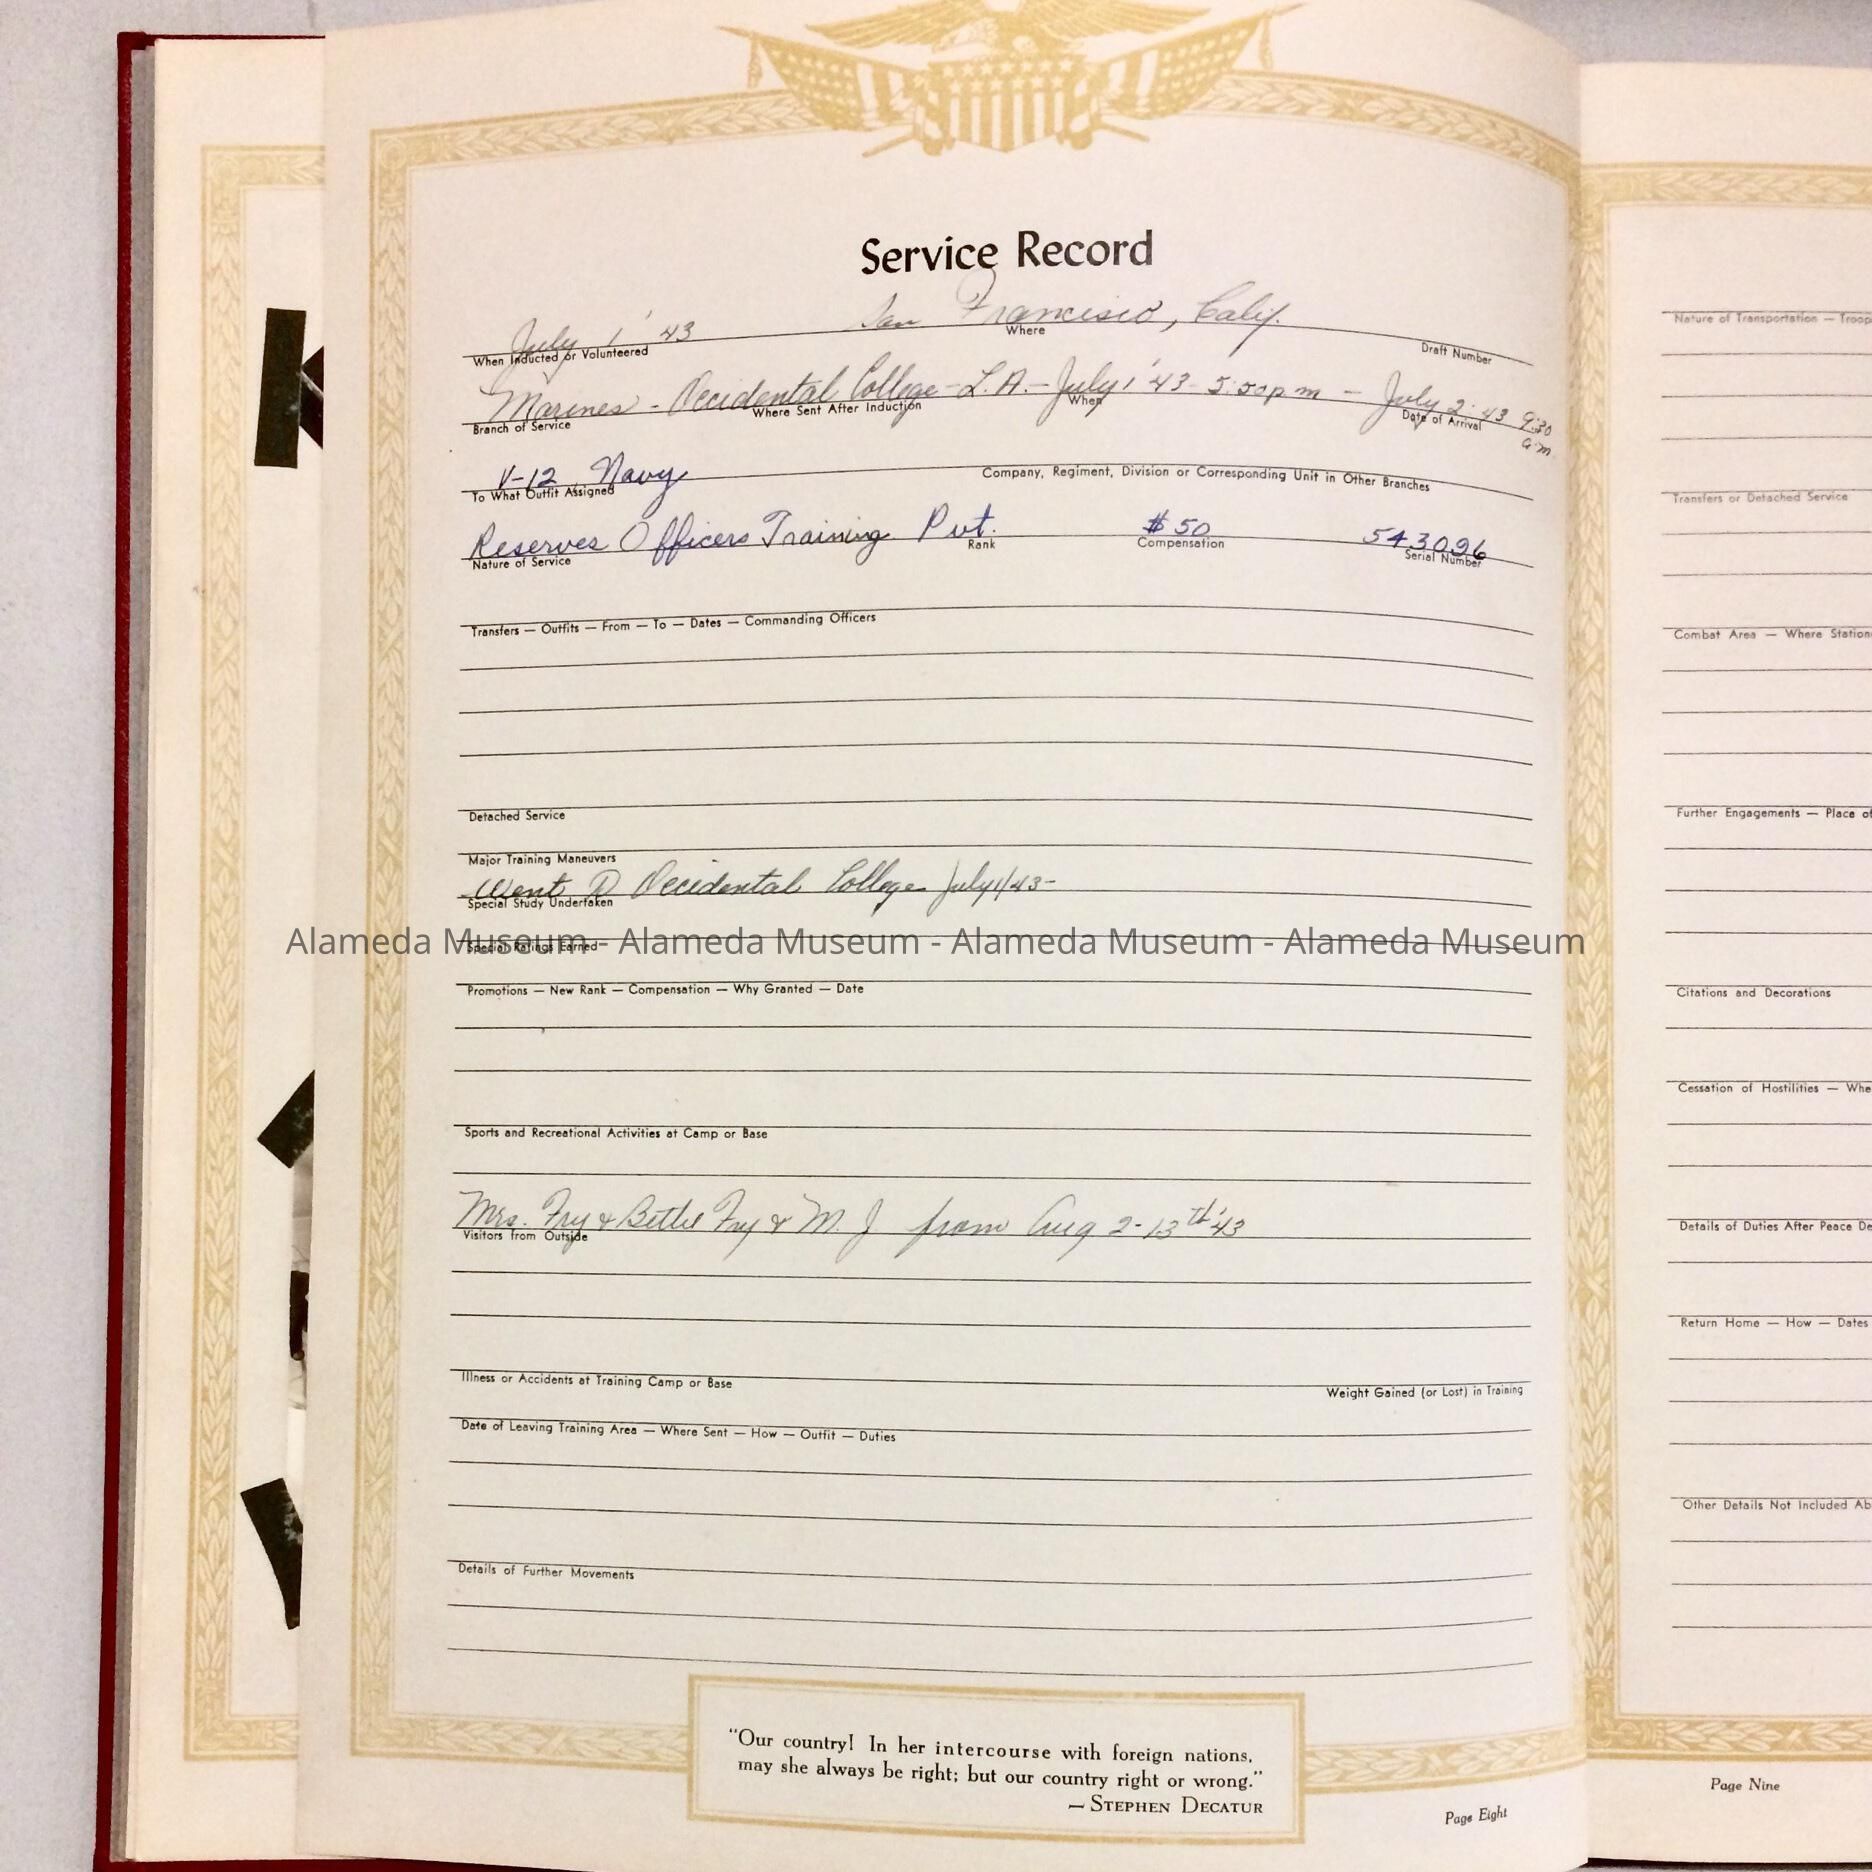 Service Record
July 1' 43 San Francisco, Calif.
When Inducted or Volunteered Where Draft Number
Marines - Occidental College - L.A. - July 1' 43 - 5:50 p m - July 2' 43 9:30 a.m.
Branch of Service Where Sent After Induction When Date of Arrival
V-12 Navy
To What Outfit Assigned Company, Regiment, Division or Corresponding Unit in Other Branches
Reserves Officers Training Pvt. $50 543096
Nature of Service Rank Compensation Serial Number
Transfers — Outfits — From — To — Dates — Commanding Officers
Detached Service
Major Training Maneuvers
Went to Occidental College July 1/43-
Special Study Undertaken
Special Ratings Earned
Alameda Museum - Alameda Museum - Alameda Museum - Alameda Museum
Promotions — New Rank — Compensation — Why Granted — Date
Sports and Recreational Activities at Camp or Base
Mrs. Fry & Bettie Fry & M. J. from Aug 2-13th '43
Visitors from Outside
Illness or Accidents at Training Camp or Base Weight Gained (or Lost) in Training
Date of Leaving Training Area — Where Sent — How — Outfit — Duties
Details of Further Movements
"Our country! In her intercourse with foreign nations,
may she always be right; but our country right or wrong."
— STEPHEN DECATUR
Page Eight
Nature of Transportation — Troop
Transfers or Detached Service
Combat Area — Where Station
Further Engagements — Place of
Citations and Decorations
Cessation of Hostilities — Whe
Details of Duties After Peace De
Return Home — How — Dates
Other Details Not Included Ab
Page Nine